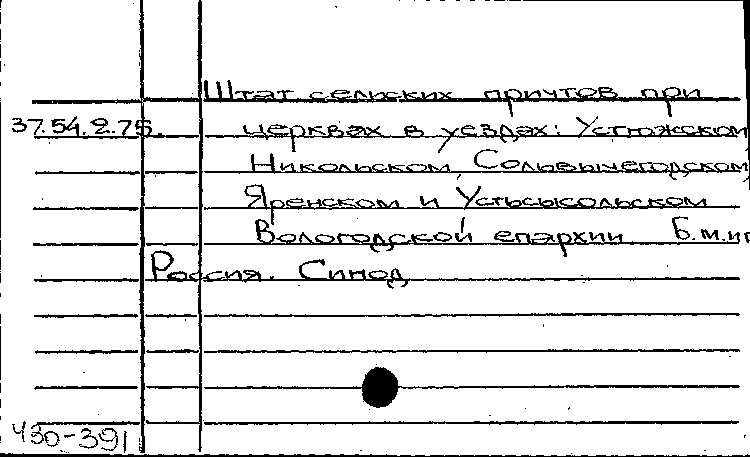 Штат сельских причтов при
37.54.2.75. церквах в уездах: Устюжском
Никольском, Сольвычегодском
Яренском и Устьсысольском
Вологодской епархии Б.м.иг
Россия. Синод
430-391